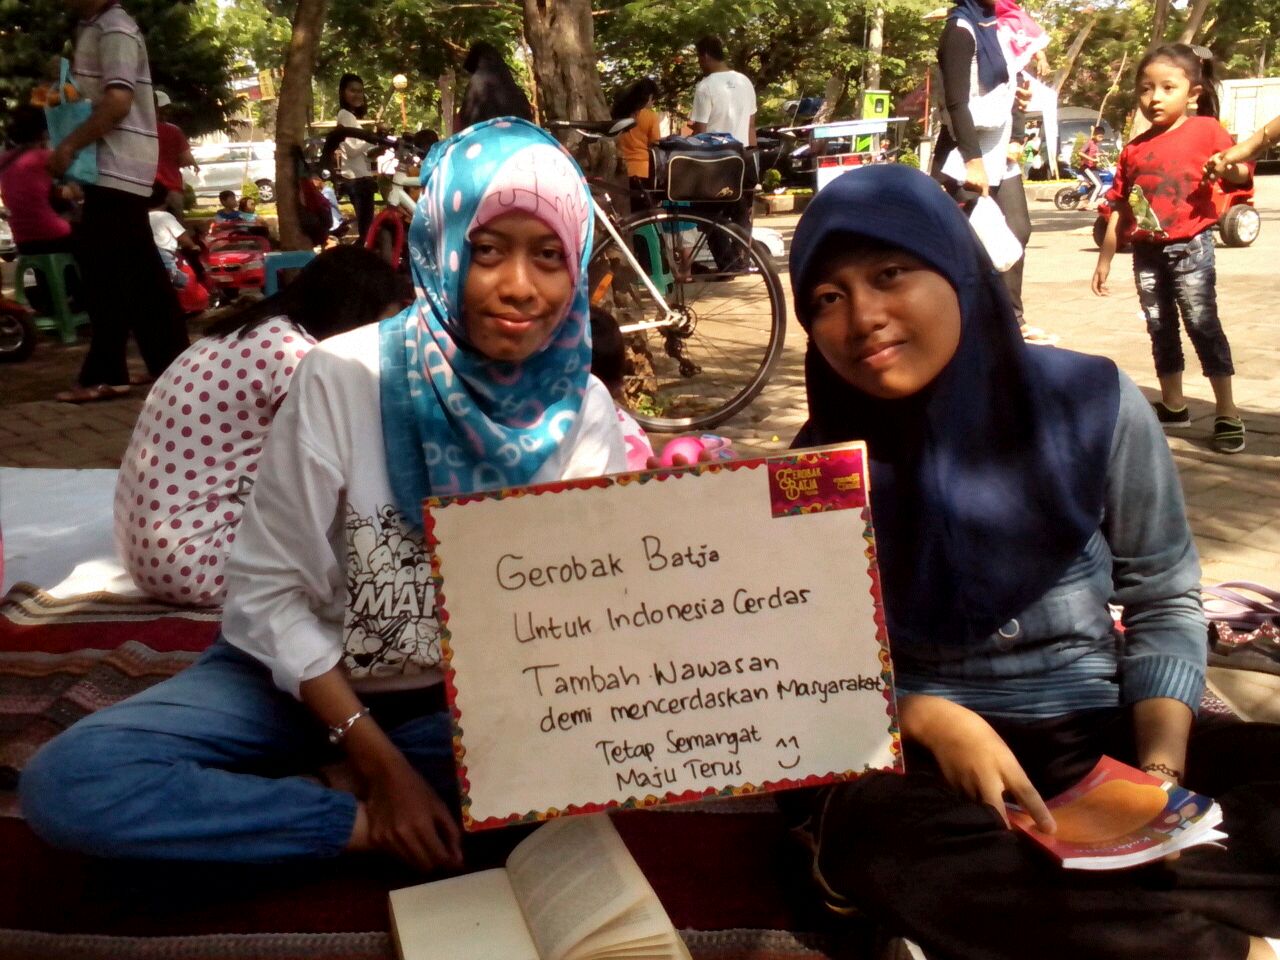 GEROBAK
BATJA
Gerobak Batja
Untuk Indonesia Cerdas
Tambah Wawasan
demi mencerdaskan Masyarakat
Tetap Semangat
Maju Terus
MAI